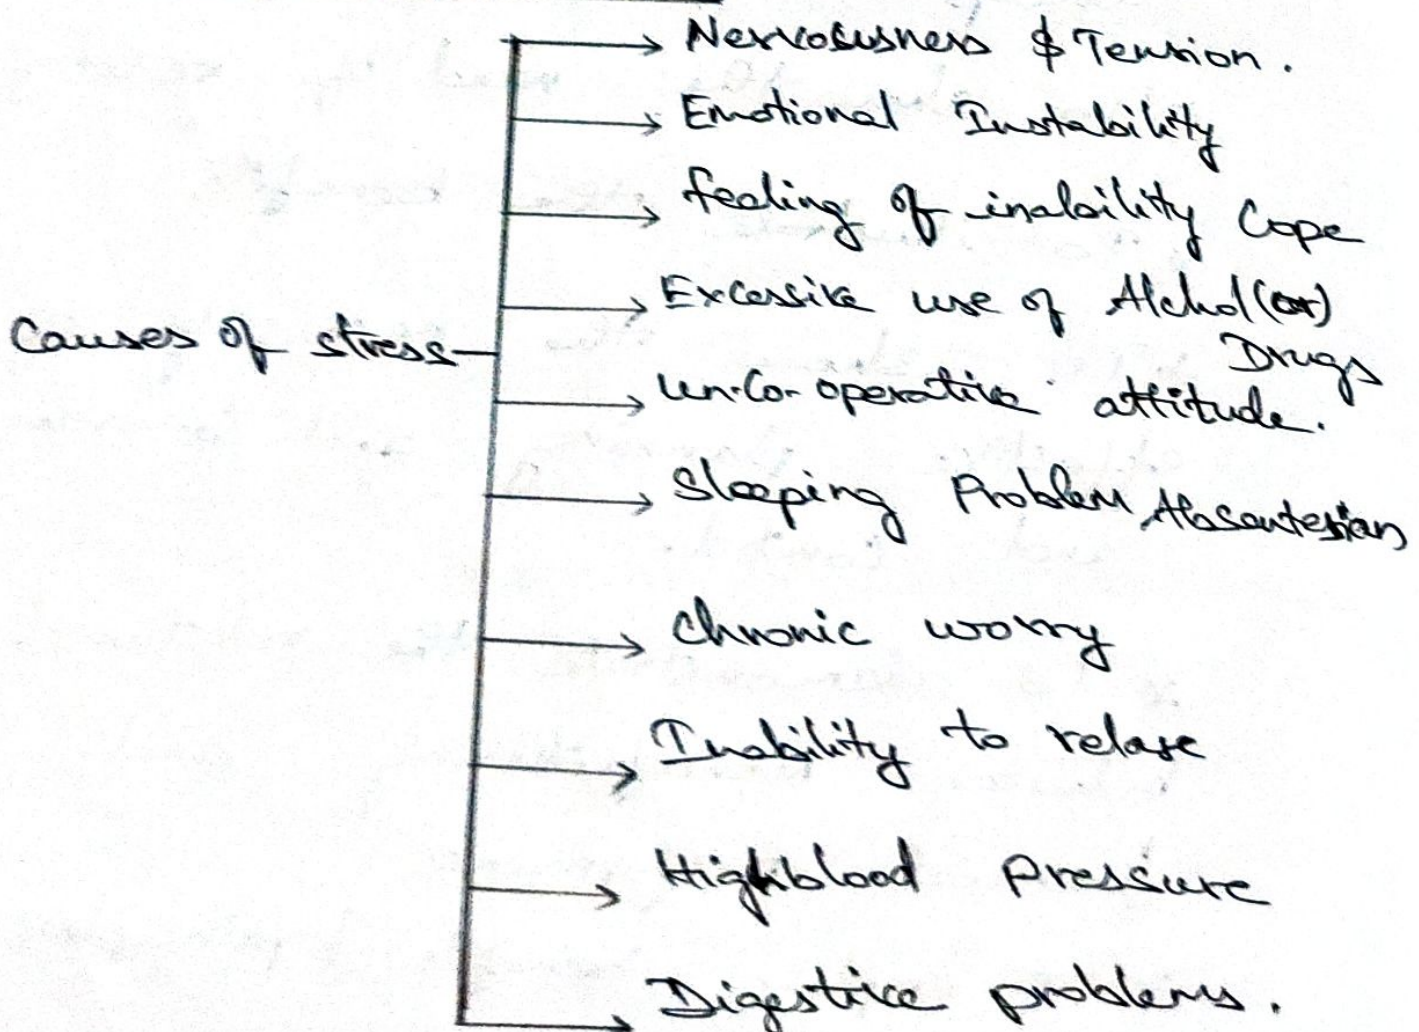 Nervousness & Tension.
Emotional Instability
feeling of inability Cope
Excessive use of Alchol (or)
Drugs
Causes of stress
un-co-operative attitude.
Sleeping Problem,
chronic worry
Inability to relax
High blood pressure
Digestive problems.